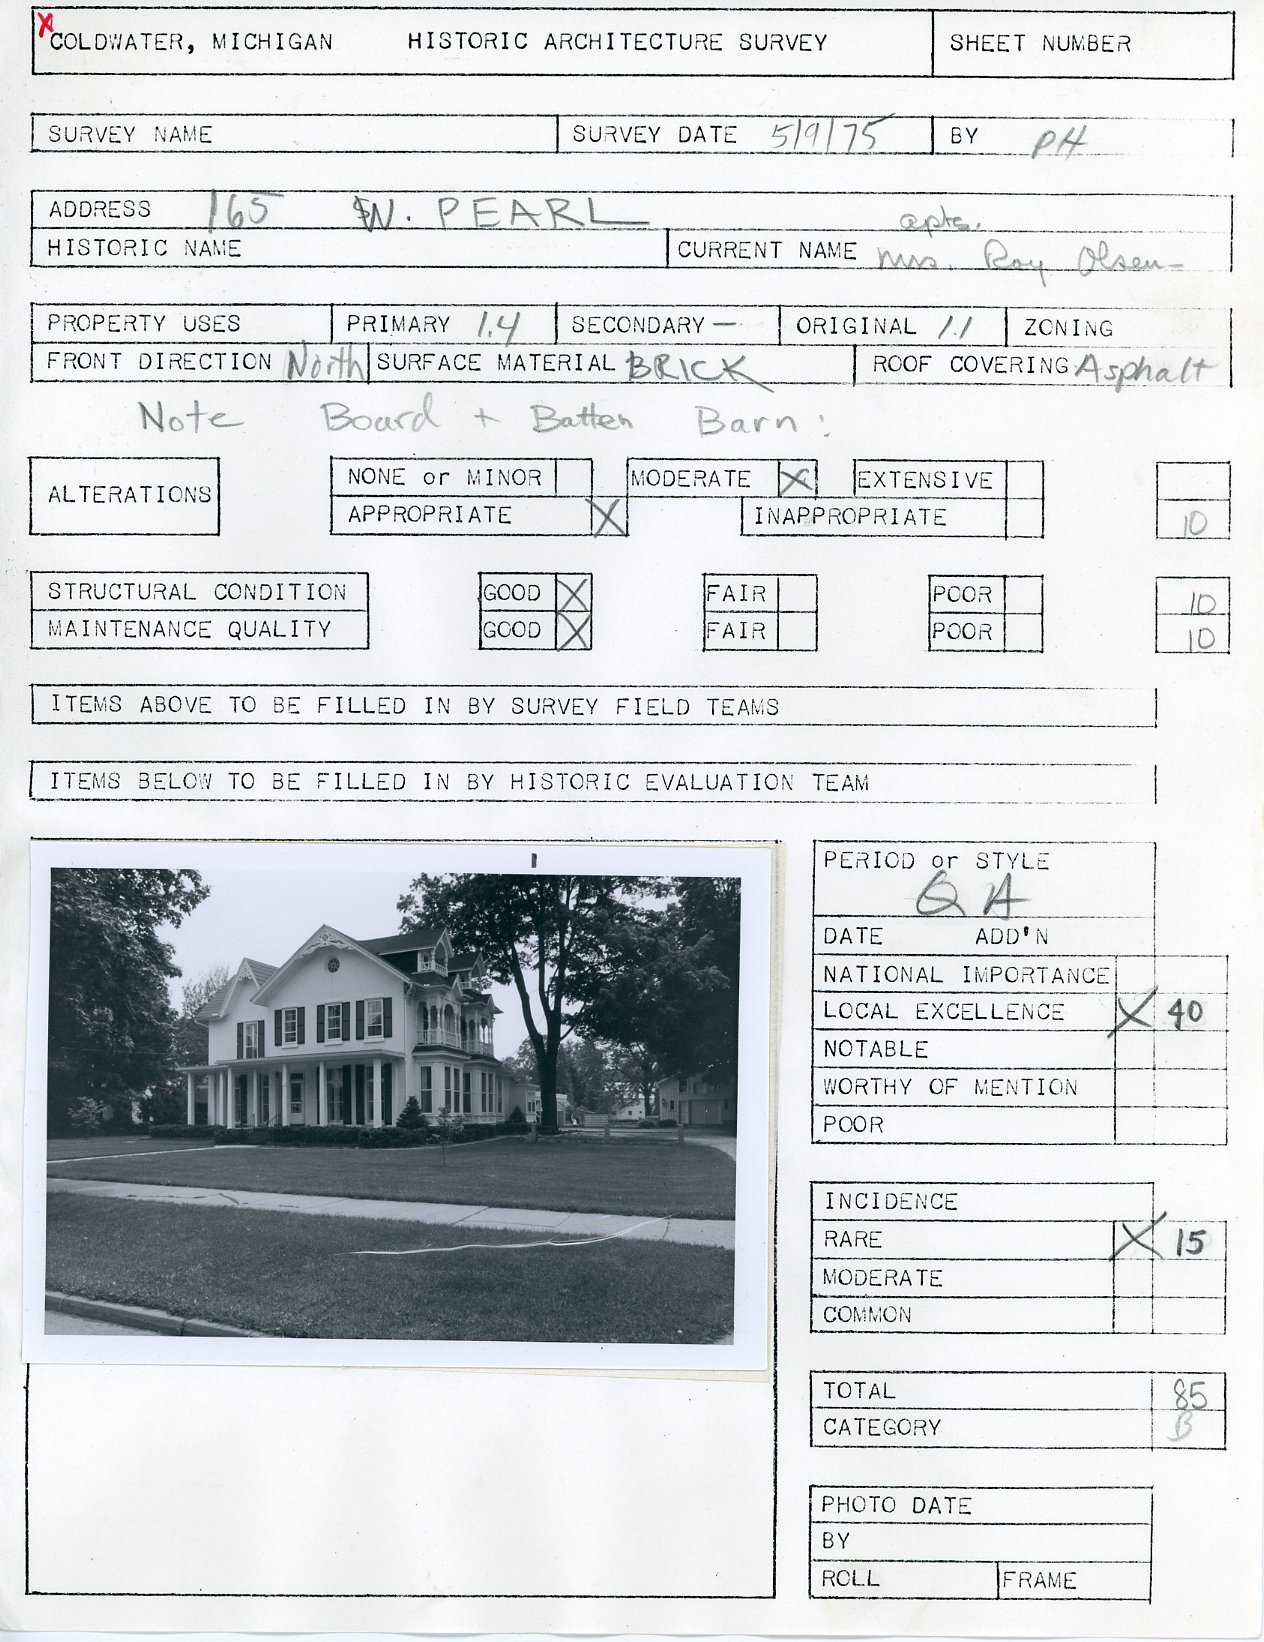 X
COLDWATER, MICHIGAN HISTORIC ARCHITECTURE SURVEY SHEET NUMBER
SURVEY NAME SURVEY DATE 5/9/75 BY PH
ADDRESS 165 W. PEARL
apts.
HISTORIC NAME CURRENT NAME Mrs. Roy Olsen-
PROPERTY USES PRIMARY 1.4 SECONDARY — ORIGINAL 1.1 ZONING
FRONT DIRECTION North SURFACE MATERIAL BRICK ROOF COVERING Asphalt
Note Board + Batten Barn:
ALTERATIONS NONE or MINOR MODERATE X EXTENSIVE
APPROPRIATE X INAPPROPRIATE 10
STRUCTURAL CONDITION GOOD X FAIR POOR 10
MAINTENANCE QUALITY GOOD X FAIR POOR 10
ITEMS ABOVE TO BE FILLED IN BY SURVEY FIELD TEAMS
ITEMS BELOW TO BE FILLED IN BY HISTORIC EVALUATION TEAM
PERIOD or STYLE
QA
DATE ADD'N
NATIONAL IMPORTANCE
LOCAL EXCELLENCE X 40
NOTABLE
WORTHY OF MENTION
POOR
INCIDENCE
RARE X 15
MODERATE
COMMON
TOTAL 85
CATEGORY B
PHOTO DATE
BY
ROLL FRAME